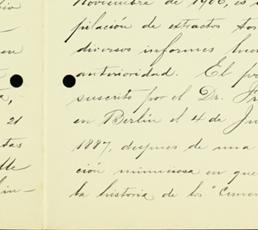 Noviembre de 1906, es
pilación de extractos
diversos informes
anterioridad. El
suscrito por el Dr.
en Berlin el 4 de
21
1887, despues de una
ción minuciosa en que
la historia de los "Cemen